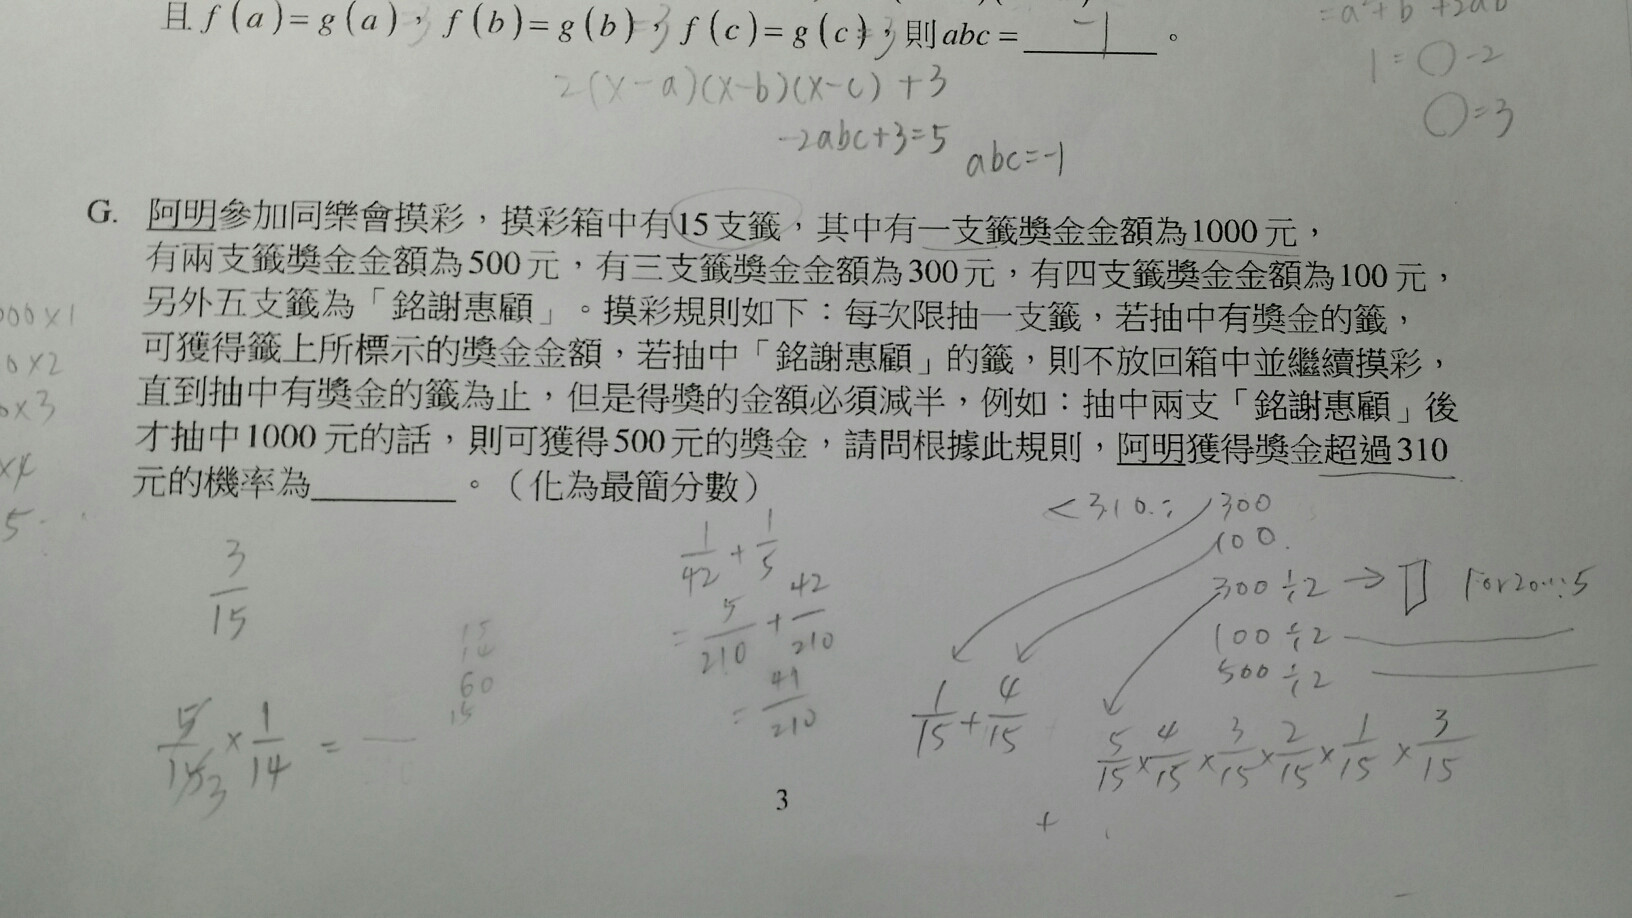 且 f(a)=g(a)，f(b)=g(b)，f(c)=g(c)，則 abc = -1 。
=a²+b²+2ab
1=○-2
○=3
2(x-a)(x-b)(x-c)+3
-2abc+3=5
abc=-1
G. 阿明參加同樂會摸彩，摸彩箱中有15支籤，其中有一支籤獎金金額為1000元，
有兩支籤獎金金額為500元，有三支籤獎金金額為300元，有四支籤獎金金額為100元，
另外五支籤為「銘謝惠顧」。摸彩規則如下：每次限抽一支籤，若抽中有獎金的籤，
可獲得籤上所標示的獎金金額，若抽中「銘謝惠顧」的籤，則不放回箱中並繼續摸彩，
直到抽中有獎金的籤為止，但是得獎的金額必須減半，例如：抽中兩支「銘謝惠顧」後
才抽中1000元的話，則可獲得500元的獎金，請問根據此規則，阿明獲得獎金超過310
元的機率為________。（化為最簡分數）
00×1
0×2
×3
×4
5
3/15
5/15 3 × 1/14 =
15
14
60
15
1/42 + 1/5
= 5/210 + 42/210
= 47/210
<310: 300
100
300÷2 →
100÷2
500÷2
1/15 + 4/15
5/15 × 4/15 × 3/15 × 2/15 × 1/15 × 3/15
+
3